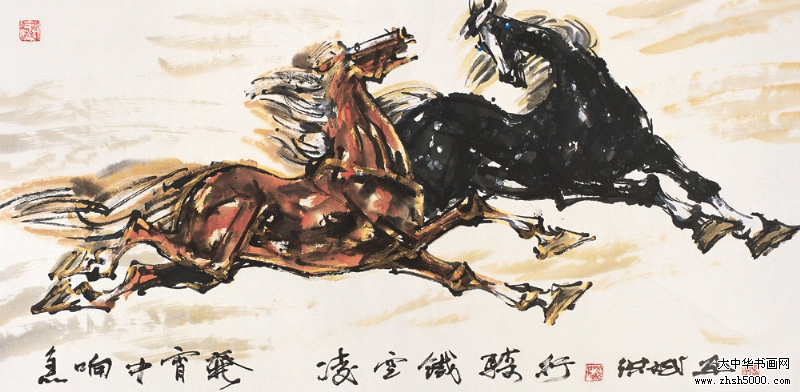 急响中宵發 凌空鐵騎行
大中华书画网
www.zhsh5000.com